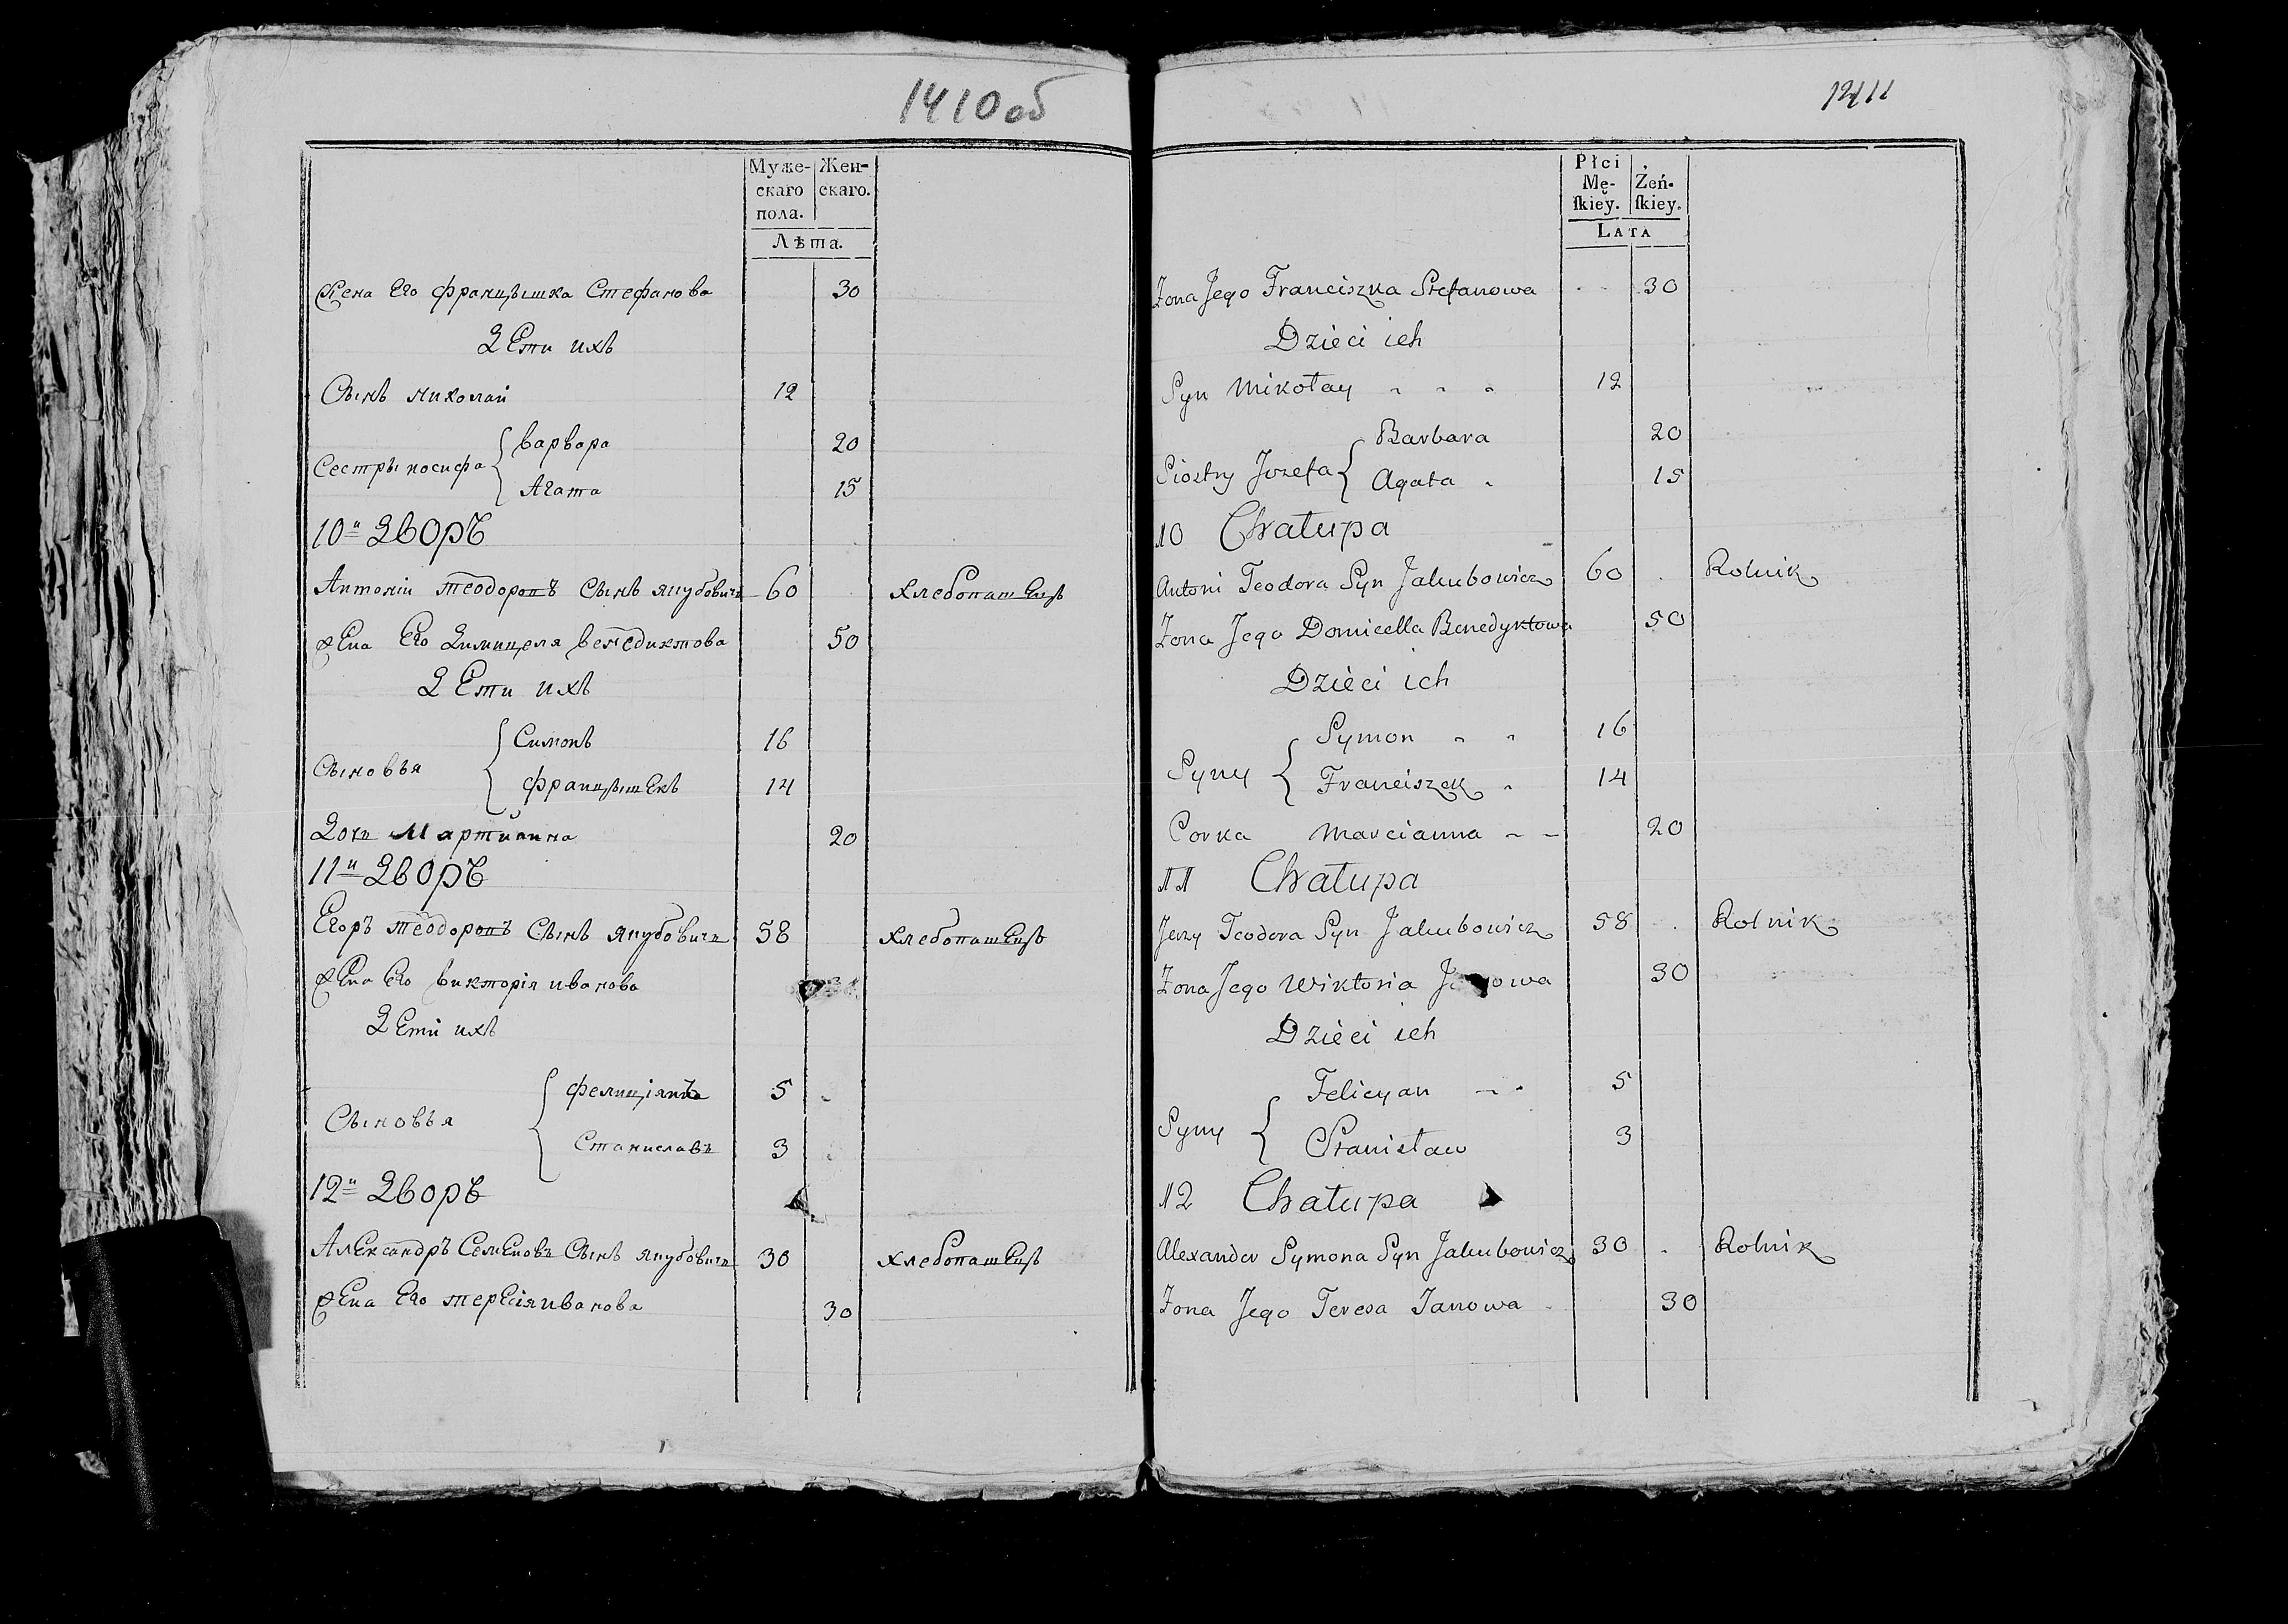 1410об
Муже- Жен-
скаго скаго.
пола.
Лѣта.
Жена Его Францышка Стефанова 30
Дѣти ихъ
Сынъ николай 12
Варвара 20
Сестры иосифа
Агата 15
10й Дворъ
Антоній теодоровъ Сынъ якубовичъ 60 хлебопашецъ
жена Его Димицеля венедиктова 50
Дети ихъ
Симонъ 16
Сыновья
Францышекъ 14
Дочь Мартианна 20
11й Дворъ
Егоръ теодоровъ Сынъ якубовичъ 58 хлебопашецъ
жена Его викторія иванова
Дети ихъ
Фелиціянъ 5
Сыновья
Станиславъ 3
12й Дворъ
Александръ Семеновъ Сынъ якубовичъ 30 хлебопашецъ
жена Его терезія иванова 30
1411
Płci
Mę- Żeń-
skiey. skiey.
LATA
Żona Jego Franciszka Stefanowa 30
Dzieci ich
Syn Mikołay 12
Barbara 20
Siostry Jozefa
Agata 15
10 Chałupa
Antoni Teodora Syn Jakubowicz 60 Rolnik
Żona Jego Domicella Benedyktowa 50
Dzieci ich
Symon 16
Syny
Franciszek 14
Corka Marcianna 20
11 Chałupa
Jerzy Teodora Syn Jakubowicz 58 Rolnik
Żona Jego Wiktoria 30
Dzieci ich
Felicyan 5
Syny
Stanisław 3
12 Chałupa
Alexander Symona Syn Jakubowicz 30 Rolnik
Żona Jego Teresa Janowa 30